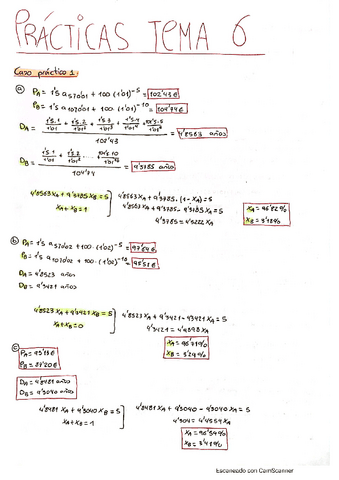 PRÁCTICAS TEMA 6
Caso práctico 1:
a) PA = 1'5 a5⌐0'01 + 100 (1'01)^-5 = 102'43 €
PB = 1'5 a10⌐0'01 + 100 (1'01)^-10 = 104'74 €
DA = = 4'8563 años
102'43
DB = = 9'3785 años
104'74
4'8563 XA + 9'3785 XB = 5
XA + XB = 1
4'8563 XA + 9'3785 · (1 - XA) = 5
4'8563 XA + 9'3785 - 9'3785 XA = 5
4'3785 = 4'5222 XA
XA = 96'82%
XB = 3'18%
b) PA = 1'5 a5⌐0'02 + 100 · (1'02)^-5 = 97'64 €
PB = 1'5 a10⌐0'02 + 100 (1'02)^-10 = 95'51 €
DA = 4'8523 años
DB = 9'3421 años
4'8523 XA + 9'3421 XB = 5
XA + XB = 0
4'8523 XA + 9'3421 - 9'3421 XA = 5
4'3421 = 4'4898 XA
XA = 96'71%
XB = 3'29%
c) PA = 93'13 €
PB = 87'20 €
DA = 4'8481 años
DB = 9'3040 años
4'8481 XA + 9'3040 XB = 5
XA + XB = 1
4'8481 XA + 9'3040 - 9'3040 XA = 5
4'304 = 4'4559 XA
XA = 96'59%
XB = 3'41%
Escaneado con CamScanner